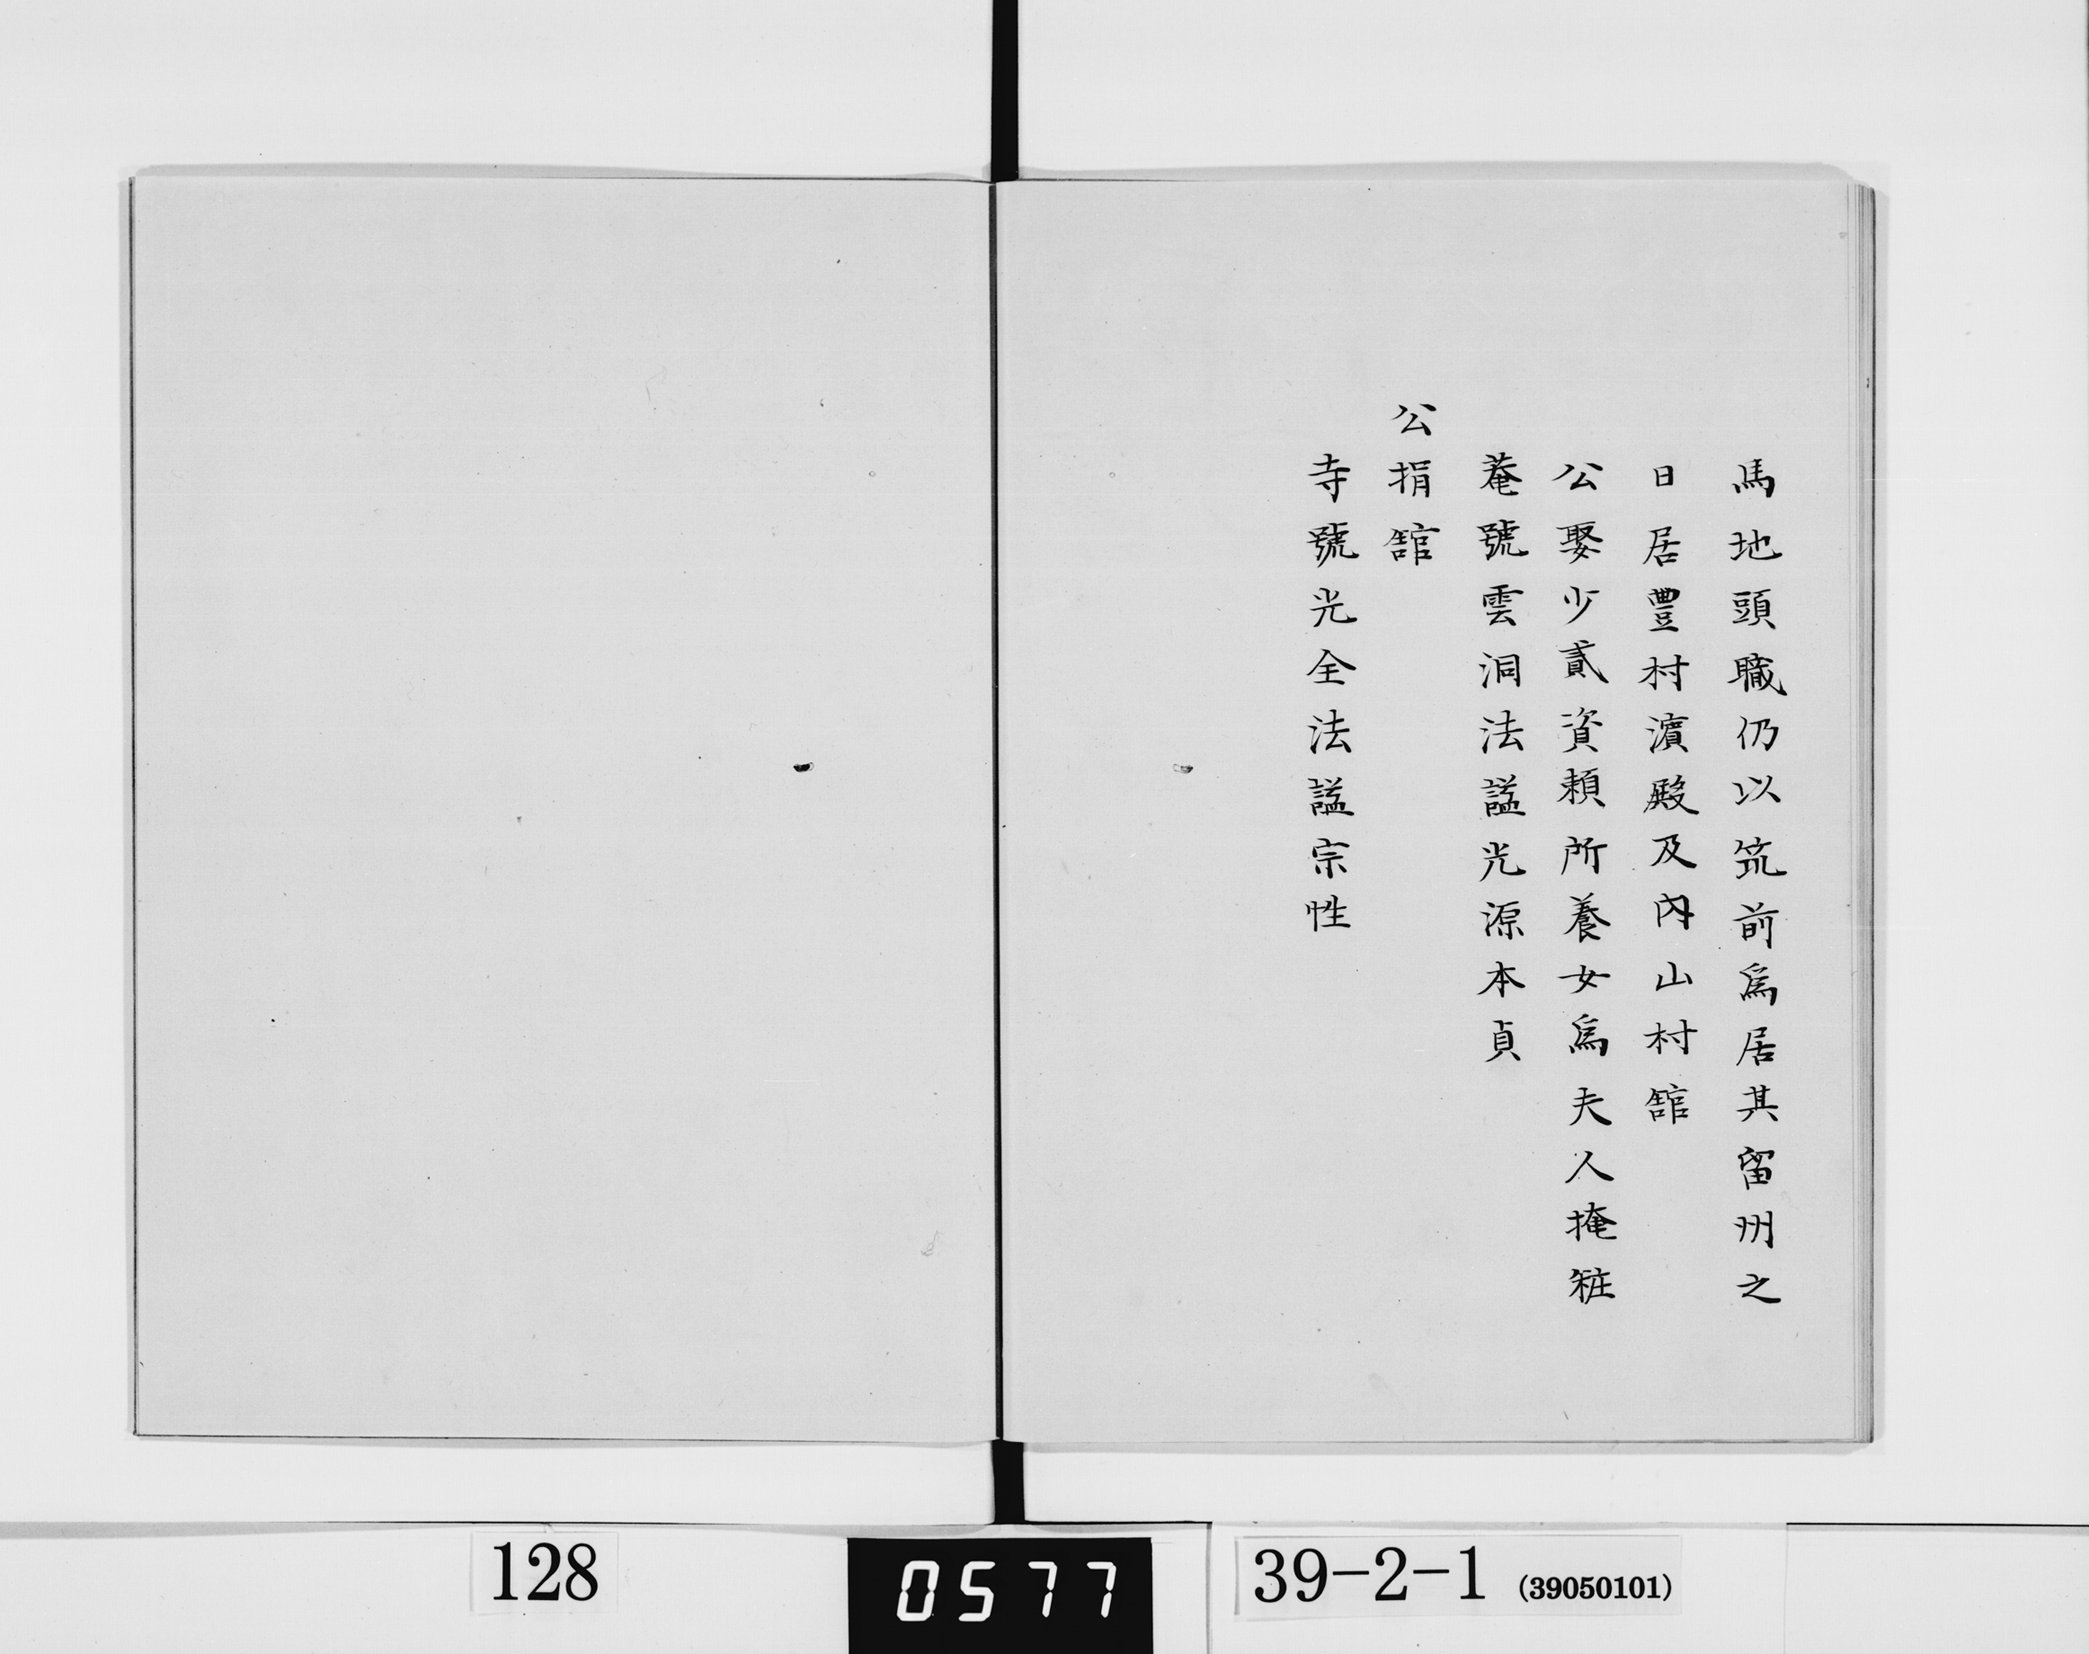 馬地頭職仍以筑前爲居其留州之
日居豊村濵殿及内山村舘
公娶少貳資頼所養女爲夫人掩粧
菴號雲洞法謚光源本貞
公捐舘
寺號光全法謚宗性
128
0577
39-2-1 (39050101)